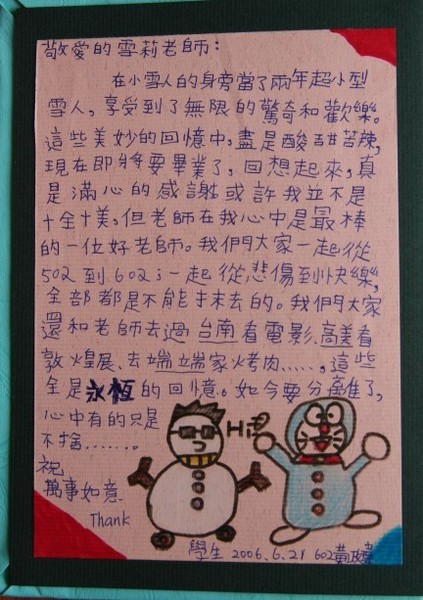 敬愛的雪莉老師：
在小雪人的身旁當了兩年超小型
雪人，享受到了無限的驚奇和歡樂。
這些美妙的回憶中，盡是酸甜苦辣，
現在即將要畢業了，回想起來，真
是滿心的感謝或許我並不是
十全十美，但老師在我心中是最棒
的一位好老師。我們大家一起從
502到602；一起從悲傷到快樂，
全部都是不能抹去的。我們大家
還和老師去過台南看電影、高美看
敦煌展、去端端家烤肉……，這些
全是永恆的回憶。如今要分離了，
心中有的只是
不捨……。
Hi
祝
萬事如意
Thank
學生 2006.6.21 602黃